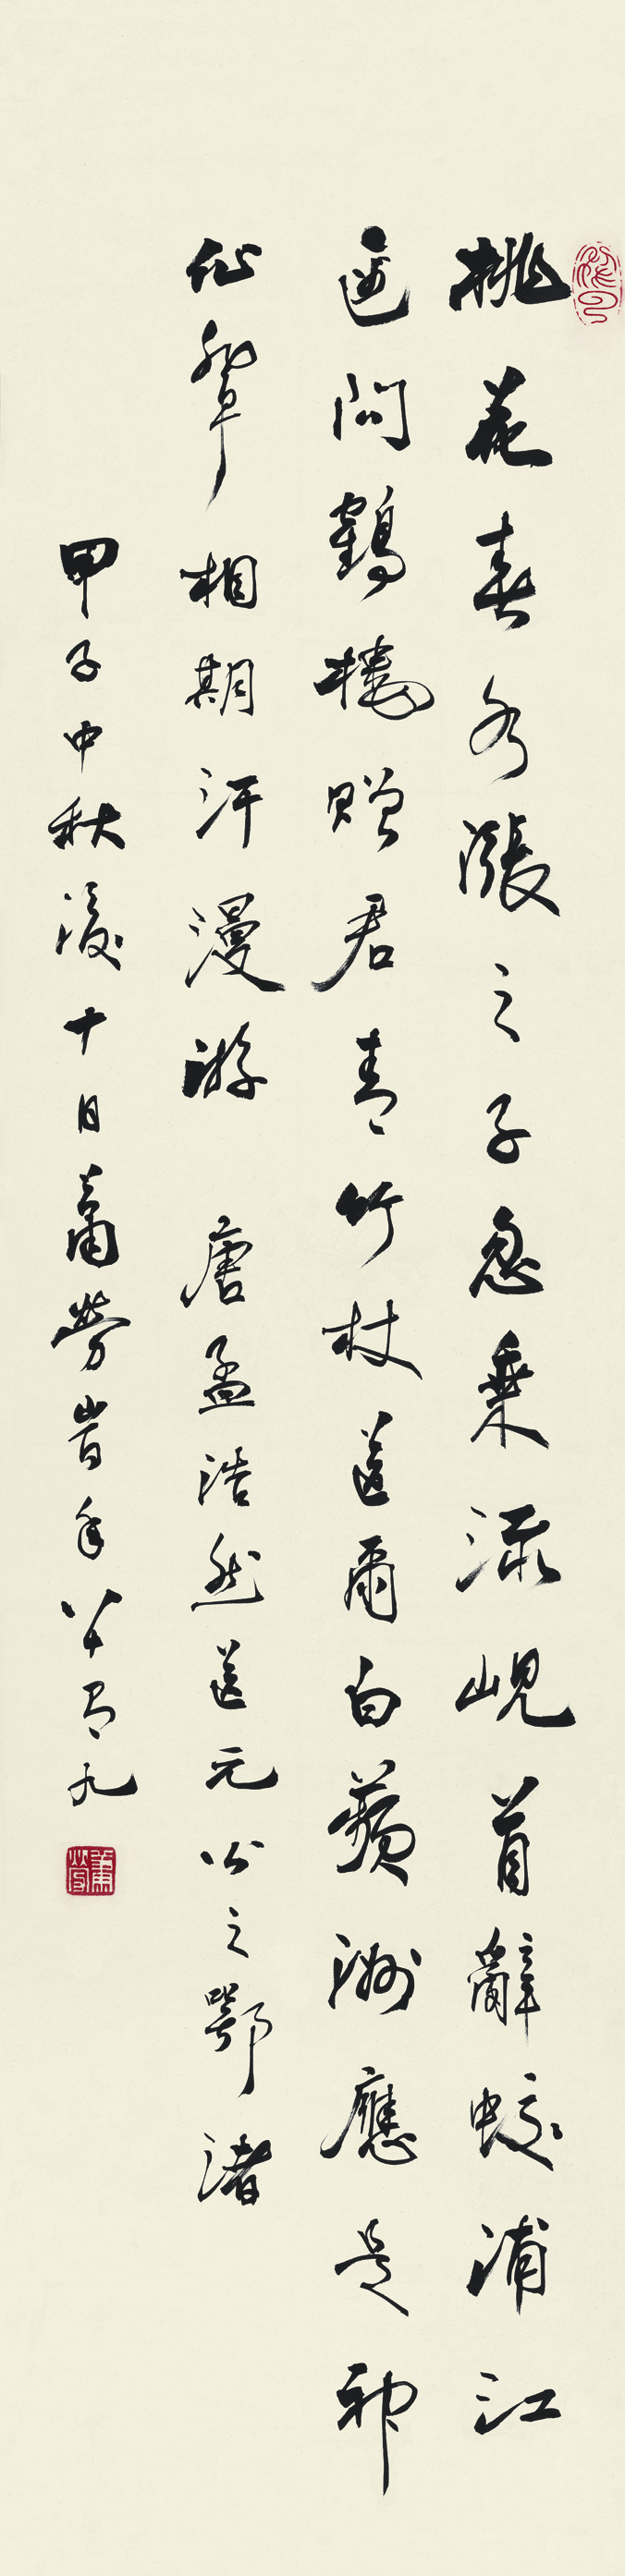 桃花春水漲之子忽乘流峴首辭蛟浦江
邊問鶴樓贈君青竹杖送爾白蘋洲應是神
仙輩相期汗漫游 唐孟浩然送元公之鄂渚
甲子中秋後十日蕭勞旹年八十有九
蕭勞